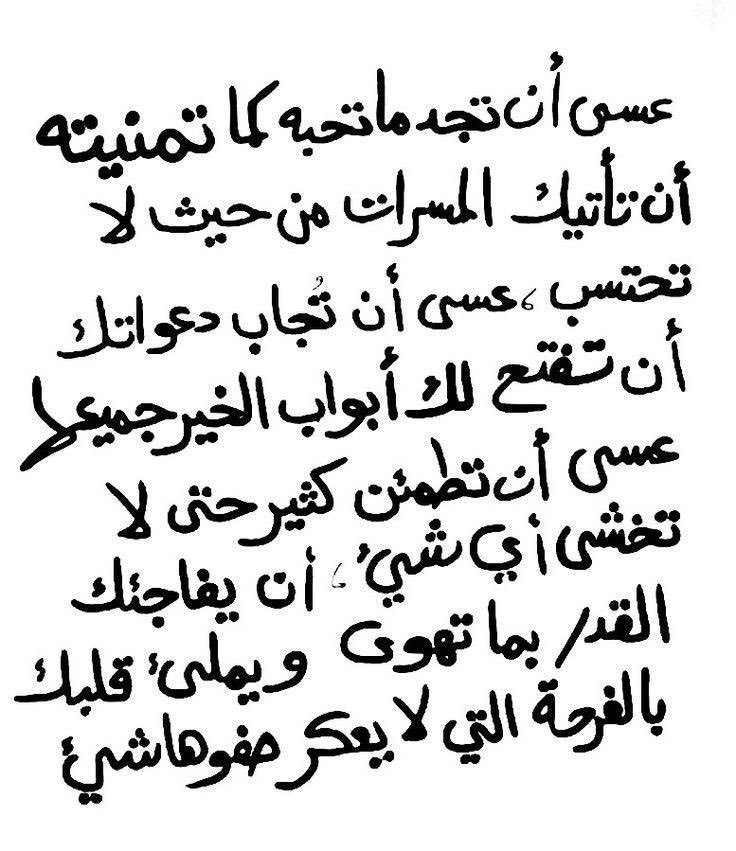 عسى أن تجد ما تحبه كما تمنيته
أن تأتيك المسرات من حيث لا
تحتسب ، عسى أن تُجاب دعواتك
أن تفتح لك أبواب الخير جميعها
عسى أن تطمئن كثير حتى لا
تخشى أي شيئ ، أن يفاجئك
القدر بما تهوى ويملئ قلبك
بالفرحة التي لا يعكر صفوها شيئ